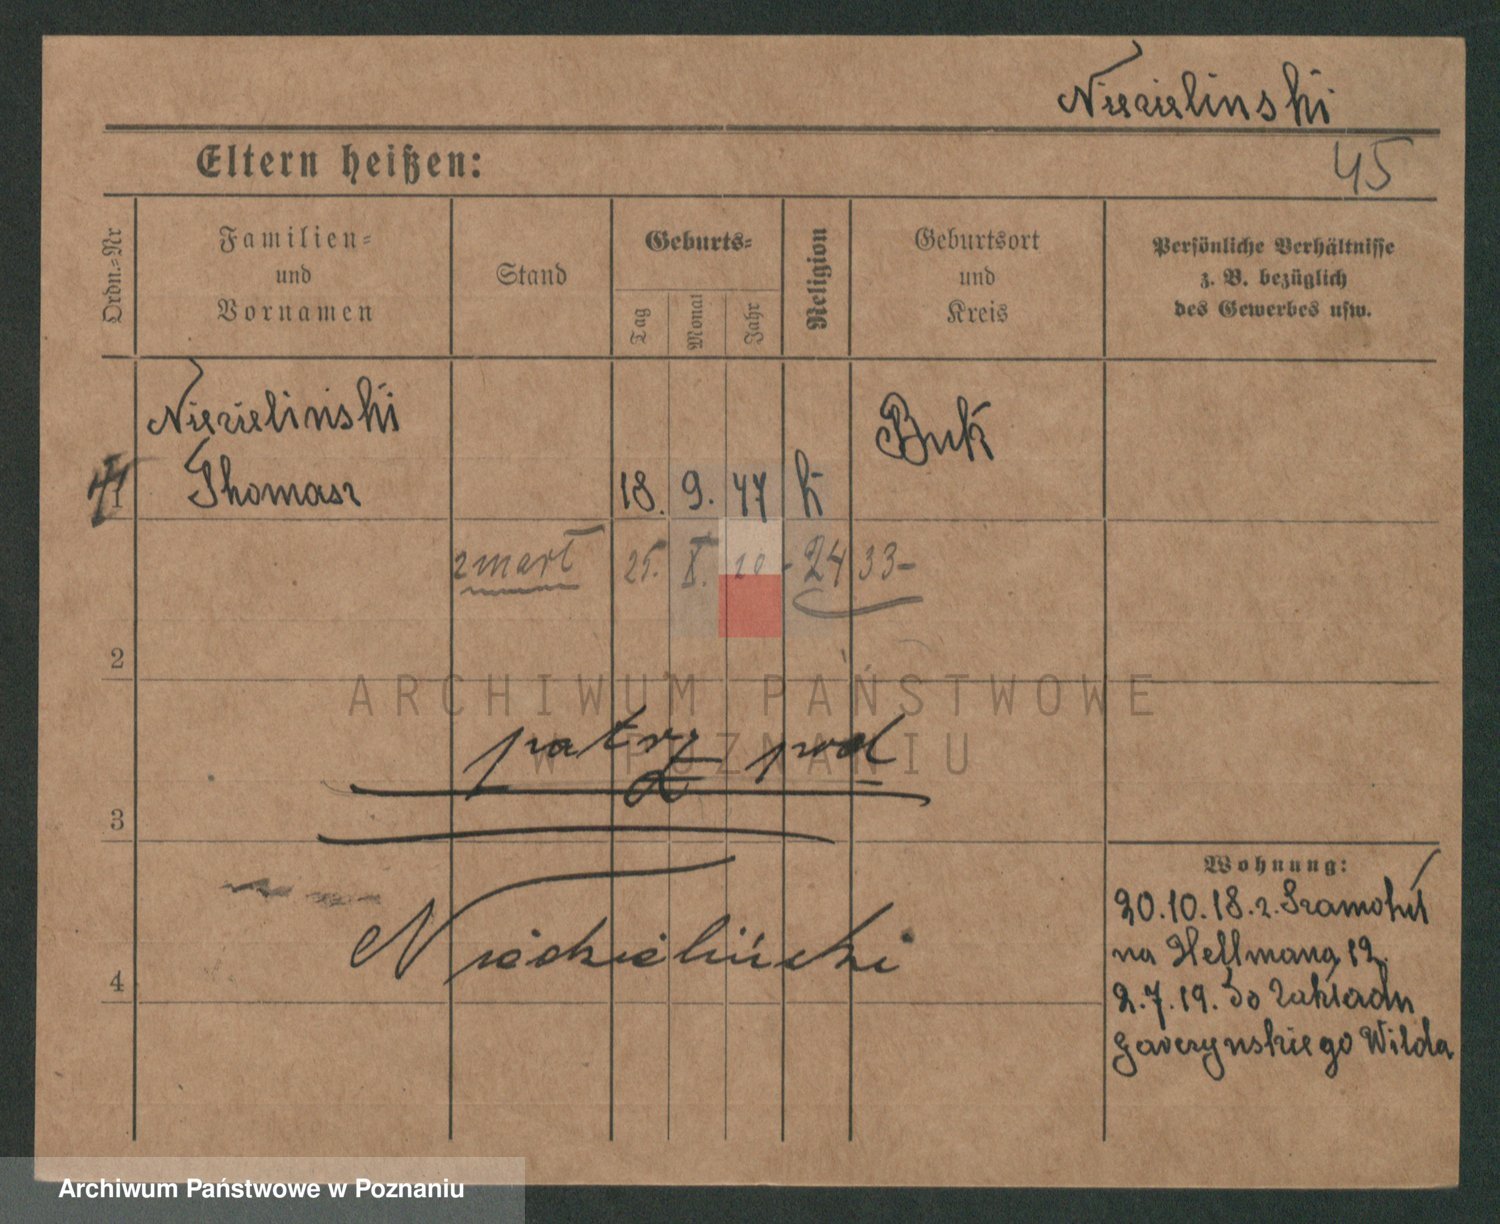 Niezielinski
Eltern heißen:
45
Ordn.-Nr
Familien-
und
Vornamen
Stand
Geburts-
Tag
Monat
Jahr
Religion
Geburtsort
und
Kreis
Persönliche Verhältnisse
z. B. bezüglich
des Gewerbes usw.
Niezielinski
Buk
1
Thomasz 18. 9. 47 k
zmarł 25. X. 20 - 24 33-
2
ARCHIWUM PAŃSTWOWE
W POZNANIU
patrz pod
3
Wohnung:
Niedzieliński
20.10.18. z. Szamotuł
na Hellmana 12.
4
2.7.19. do Zakładu
Wilda
Archiwum Państwowe w Poznaniu